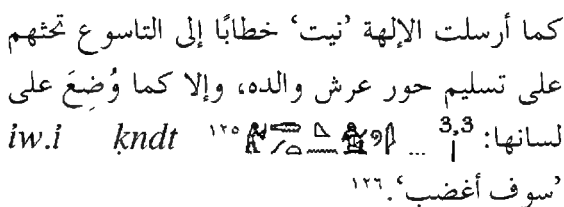 كما أرسلت الإلهة ’نيت‘ خطابًا إلى التاسوع تحثهم
على تسليم حور عرش والده، وإلا كما وُضِعَ على
لسانها: 3,3 ... ١٢٥ iw.i ḳndt
’سوف أغضب‘.١٢٦